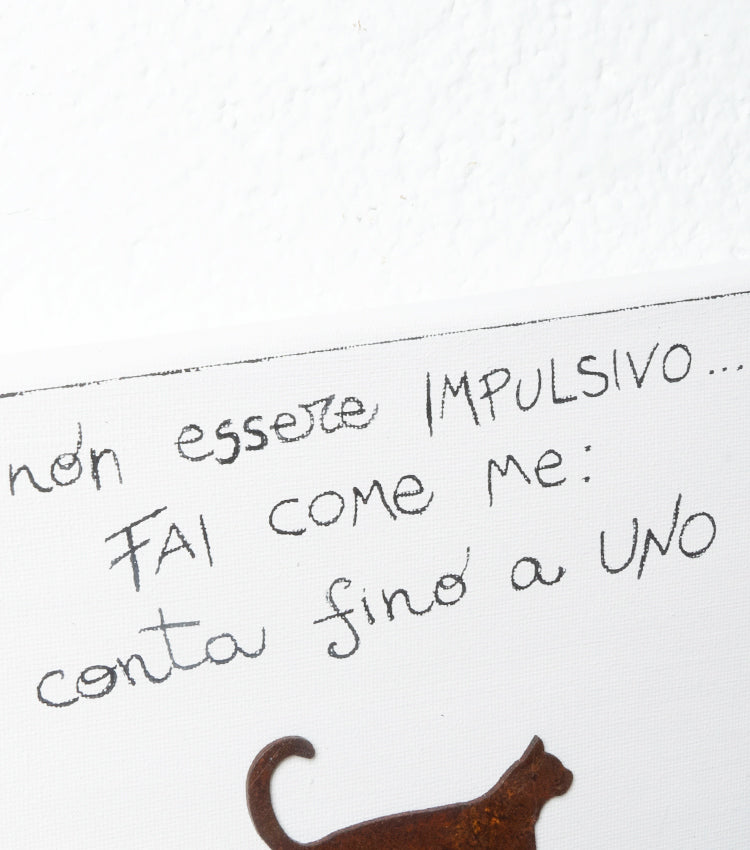 non essere IMPULSIVO...
FAI COME ME:
conta fino a UNO